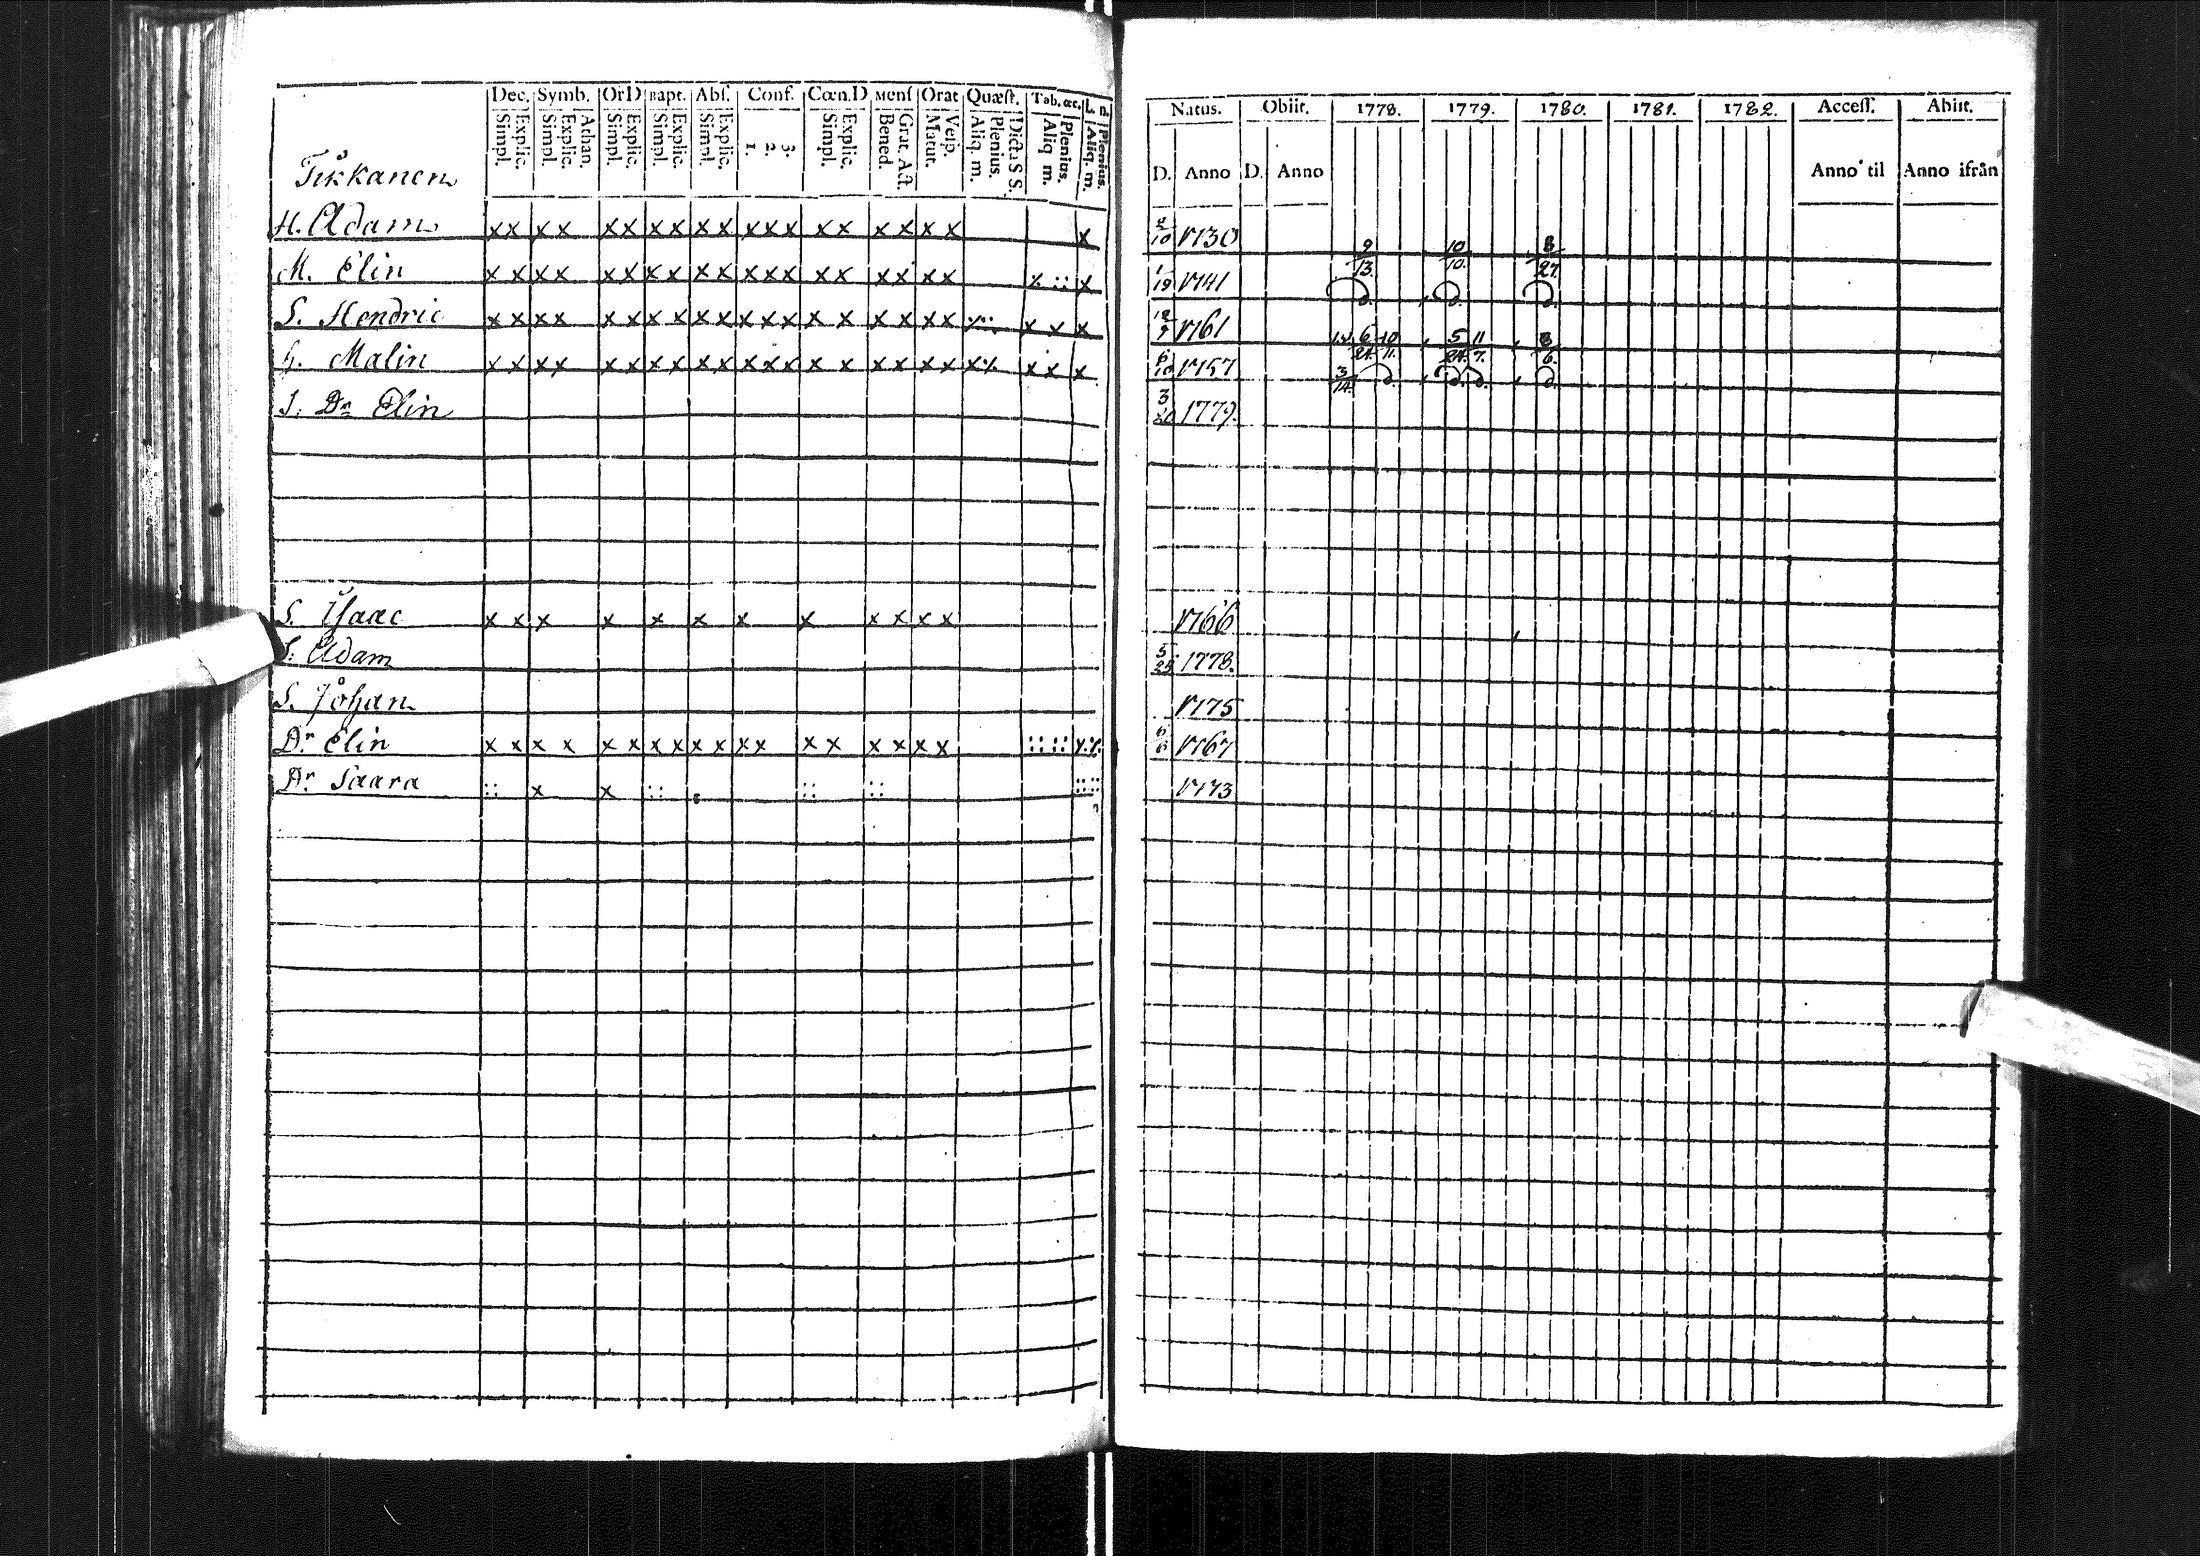 Dec. Symb. OrD Bapt. Abs. Conf. Cœn.D Mens Orat Quæst. Tab. œc. L. n.
Explic. Simpl. Athan. Explic. Simpl. Explic. Simpl. Explic. Simpl. Explic. Simpl. 3. 2. 1. Explic. Simpl. Grat. Act. Bened. Vesp. Matut. Dicta S S. Plenius. Aliq. m. Plenius. Aliq m. Plenius. Aliq. m.
Tikkanen
H. Adam x x x x x x x x x x x x x x x x x x x x
M. Elin x x x x x x x x x x x x x x x x x x x
S. Hendric x x x x x x x x x x x x x x x x x x x x x x
H. Malin x x x x x x x x x x x x x x x x x x x x x x x
S. Dr Elin
S. Isaac x x x x x x x x x x x x
S. Adam
S. Johan
Dr Elin x x x x x x x x x x x x x x x x x x
Dr Saara :: x x :: :: :: ::::
Natus. Obiit. 1778. 1779. 1780. 1781. 1782. Access. Abiit.
D. Anno D. Anno Anno til Anno ifrån
2/10 1730 9/13. 10/10. 8/27.
1/19 1741 d. d. d.
12/9 1761 6/24 10/11. 5/24. 11/7. 8/6.
6/10 1757 3/14. d. d. d. d.
3/20 1779.
1766
5/25 1778.
1775
6/6 1767
1773